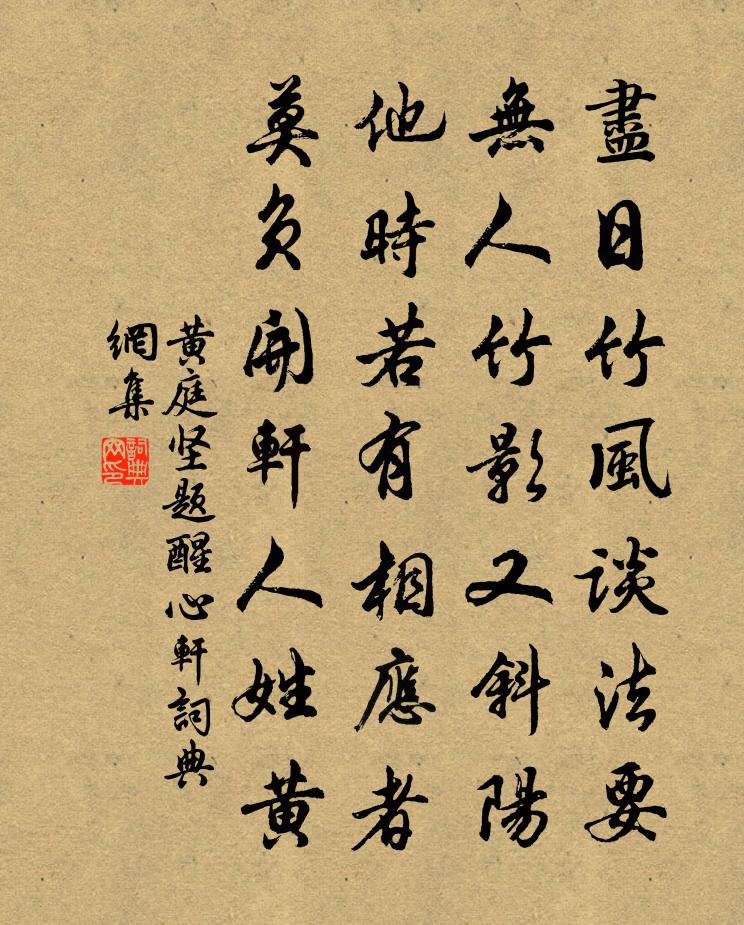 盡日竹風談法要
無人竹影又斜陽
他時若有相應者
莫負開軒人姓黃
黃庭坚题醒心軒詞典
網集
詞典
网印